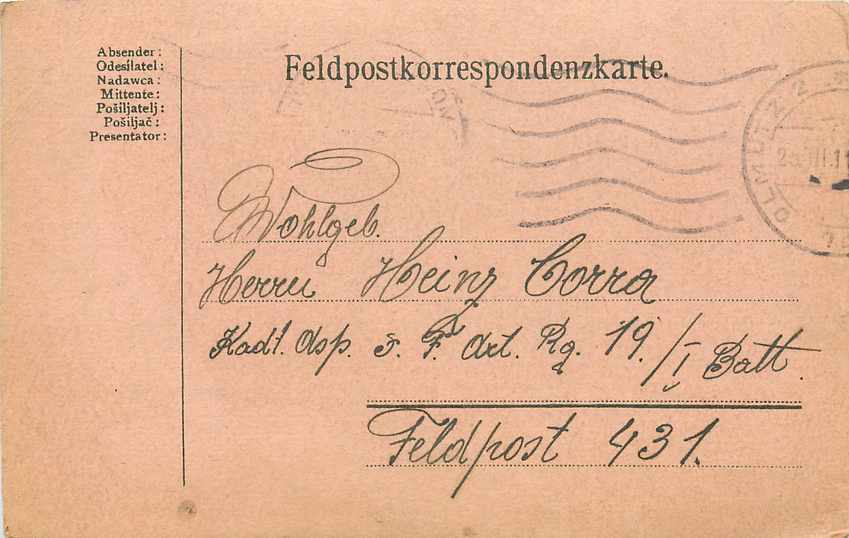 Absender:
Odesílatel:
Nadawca:
Mittente:
Pošiljatelj:
Pošiljač:
Presentator:
Feldpostkorrespondenzkarte.
OLMÜTZ 2
Wohlgeb.
Herrn Heinz Corra
Kadt. Asp. F. Art. Rg. 19./I Batt.
Feldpost 431.